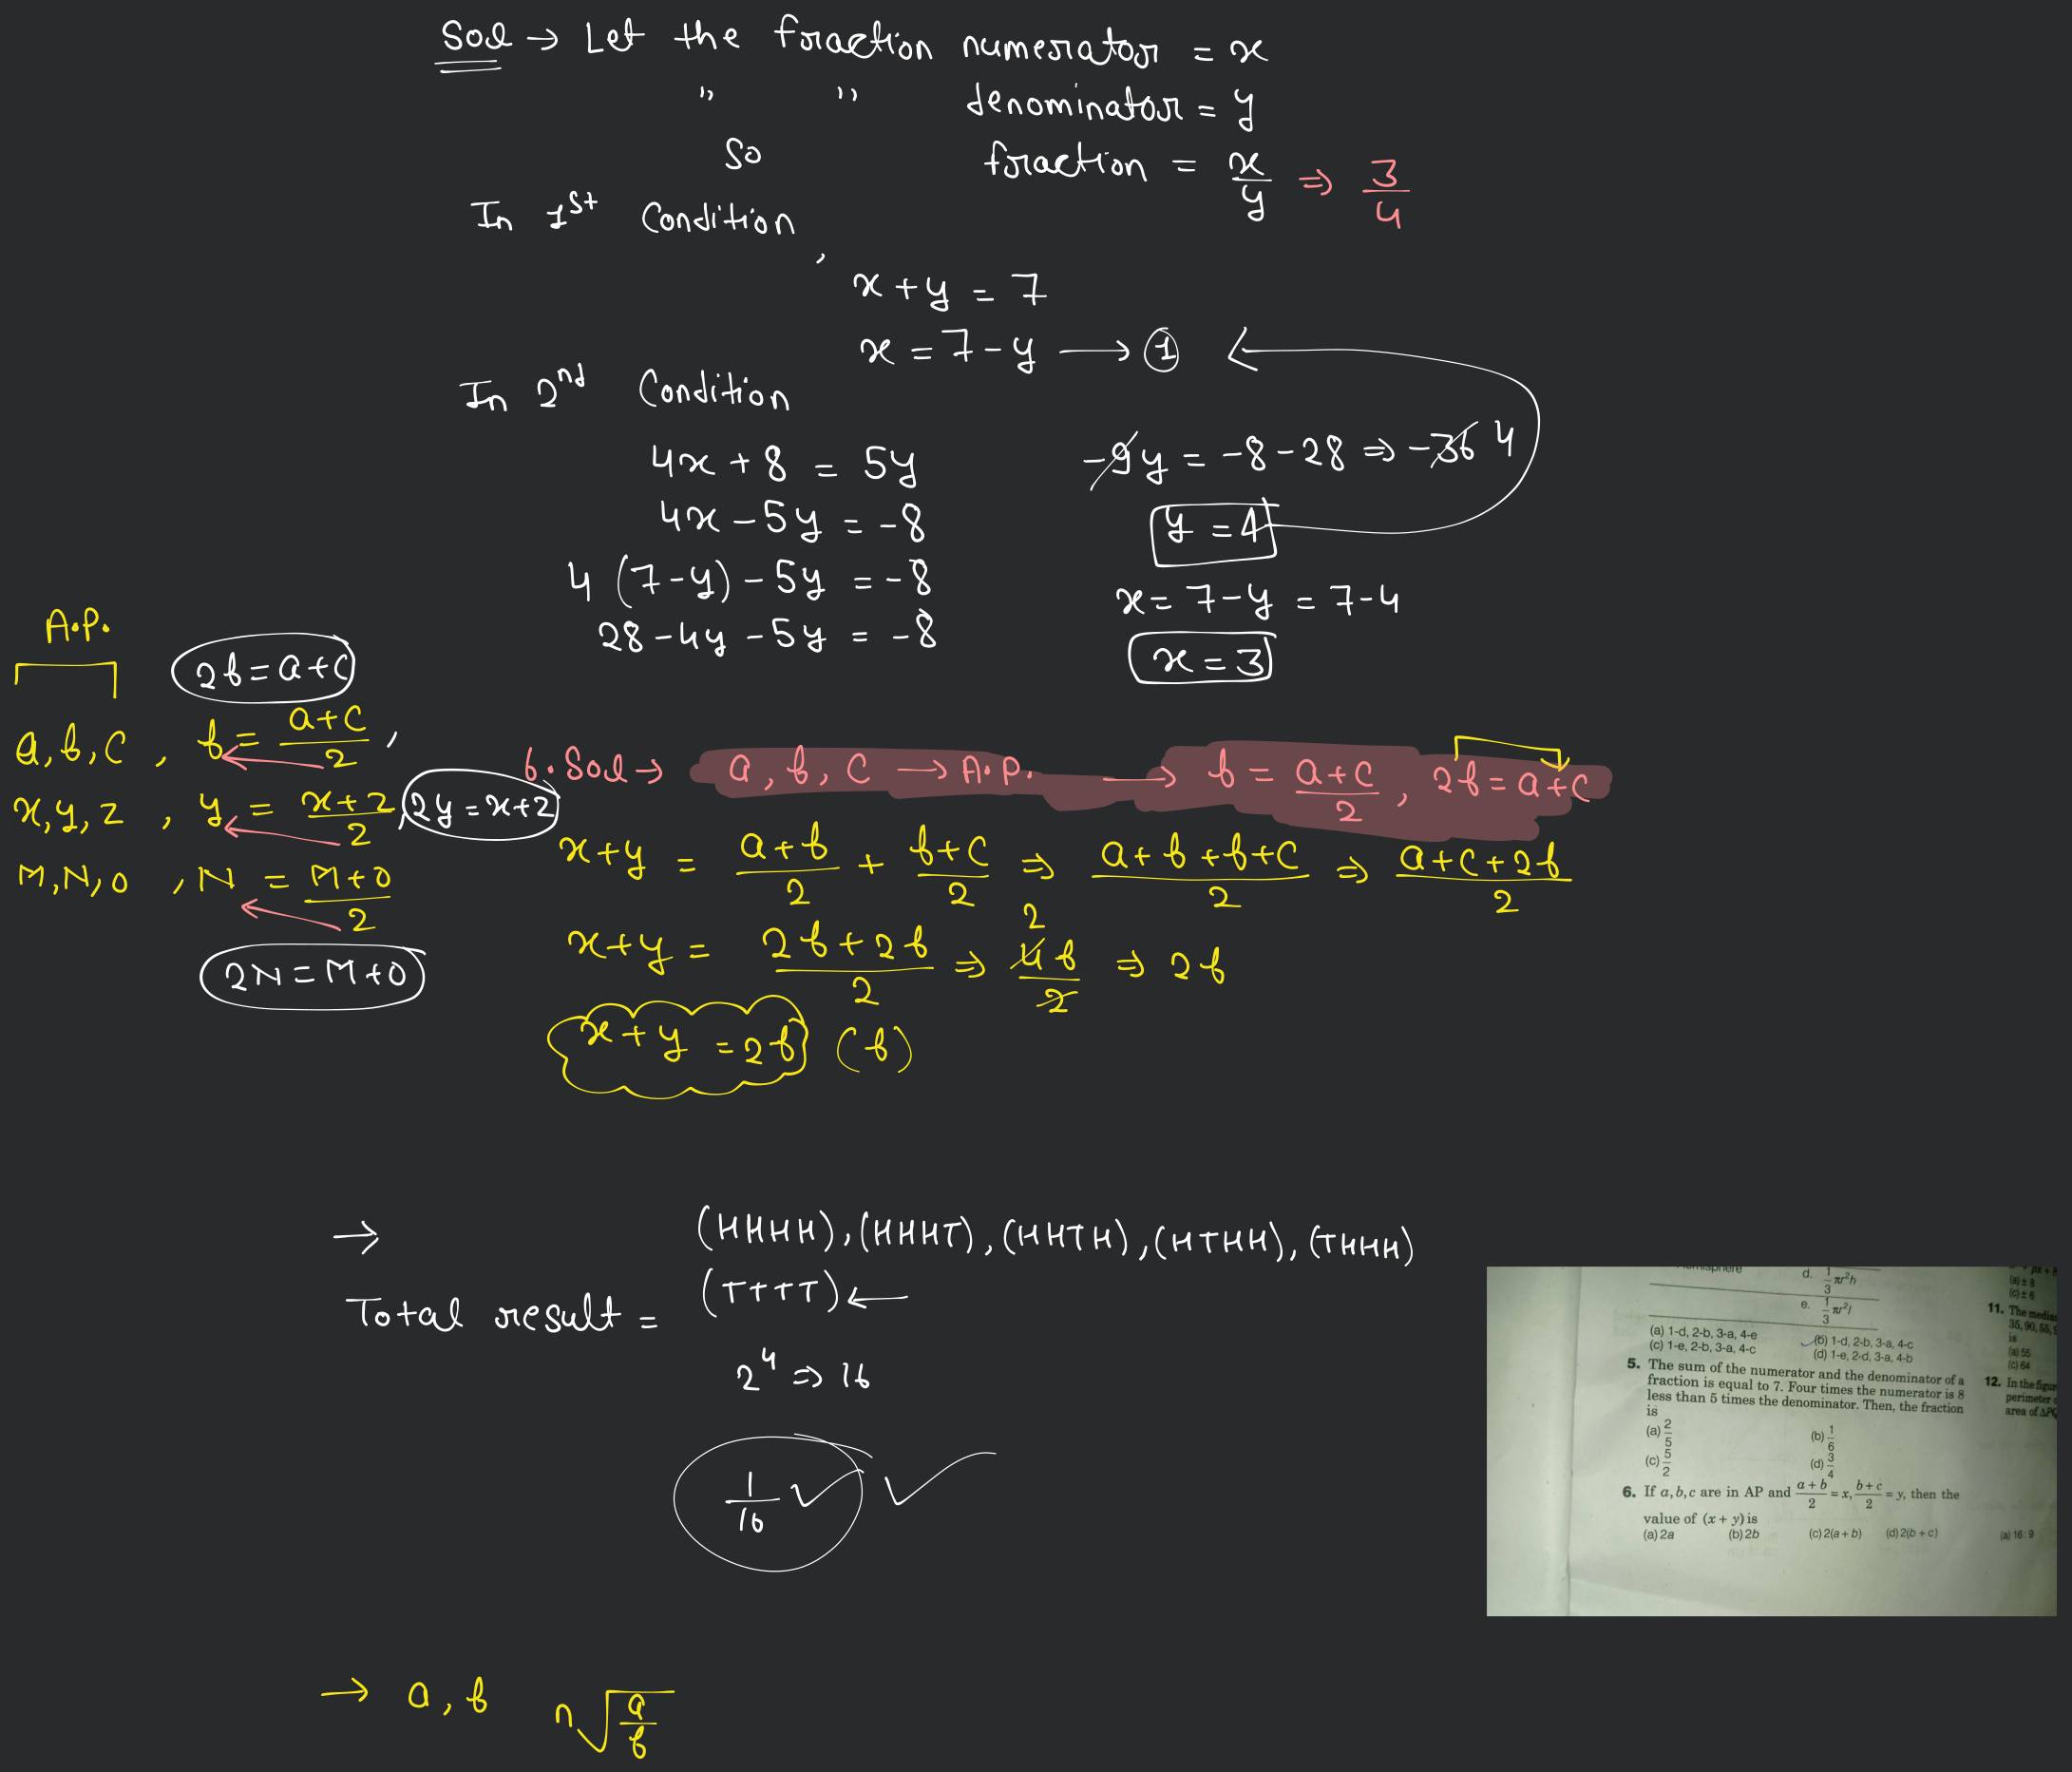 Sol → Let the fraction numerator = x
" " denominator = y
So fraction = x/y ⇒ 3/4
In 1st Condition,
x + y = 7
x = 7 - y → ①
In 2nd Condition
4x + 8 = 5y
4x - 5y = -8
4 (7-y) - 5y = -8
28 - 4y - 5y = -8
-9y = -8 - 28 ⇒ -36 4
y = 4
x = 7 - y = 7 - 4
x = 3
A.P.
2b = a + c
a, b, c , b = a+c/2 ,
x, y, z , y = x+z/2 , 2y = x+z
M, N, O , N = M+O/2
2N = M+O
6. Sol → a, b, c → A.P. → b = a+c/2 , 2b = a+c
x+y = a+b/2 + b+c/2 ⇒ a+b+b+c/2 ⇒ a+c+2b/2
x+y = 2b+2b/2 ⇒ 4b/2 2 ⇒ 2b
x+y = 2b (b)
→ (HHHH), (HHHT), (HHTH), (HTHH), (THHH)
Total result = (TTTT) ←
2^4 ⇒ 16
1/16
→ a, b n√a/b
d. 1/3 πr²h
e. 1/3 πr²l
(a) 1-d, 2-b, 3-a, 4-e (b) 1-d, 2-b, 3-a, 4-c
(c) 1-e, 2-b, 3-a, 4-c (d) 1-e, 2-d, 3-a, 4-b
5. The sum of the numerator and the denominator of a
fraction is equal to 7. Four times the numerator is 8
less than 5 times the denominator. Then, the fraction
is
(a) 2/5 (b) 1/6
(c) 5/2 (d) 3/4
6. If a, b, c are in AP and a+b/2 = x, b+c/2 = y, then the
value of (x + y) is
(a) 2a (b) 2b (c) 2(a + b) (d) 2(b + c)
(a) ± 8
(c) ± 6
11. The median
35, 90, 55,
is
(a) 55
(c) 64
12. In the figur
perimeter
area of
(a) 16 : 9